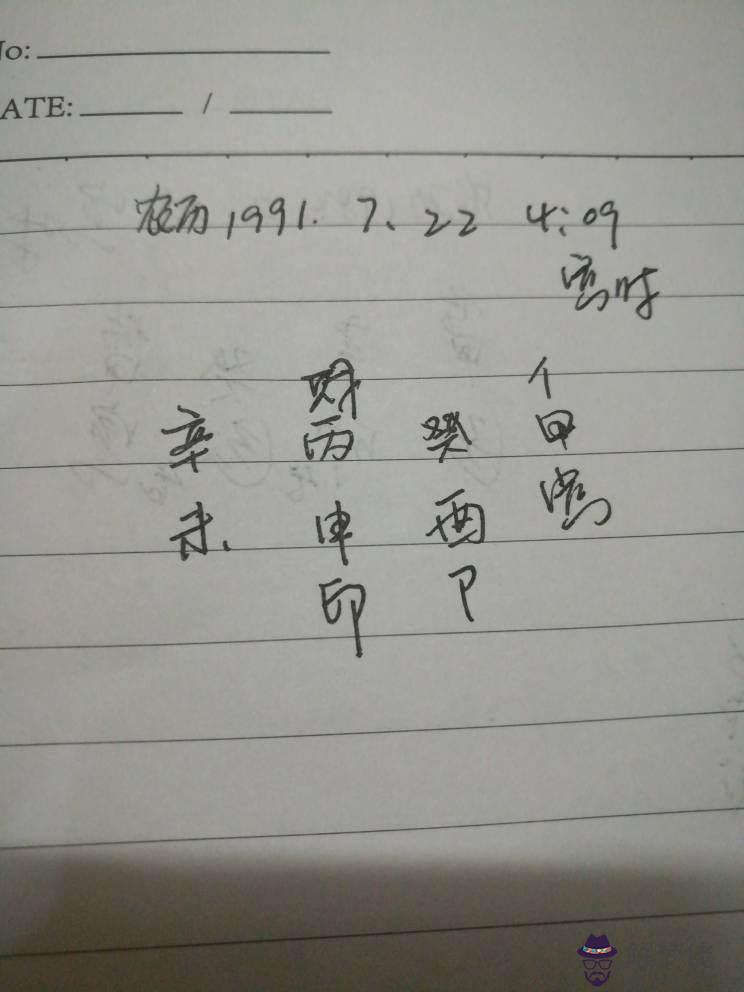 No:
DATE: /
农历1991.7.22 4:09
寅时
财 个
辛 丙 癸 甲
未 申 酉 寅
印 卩